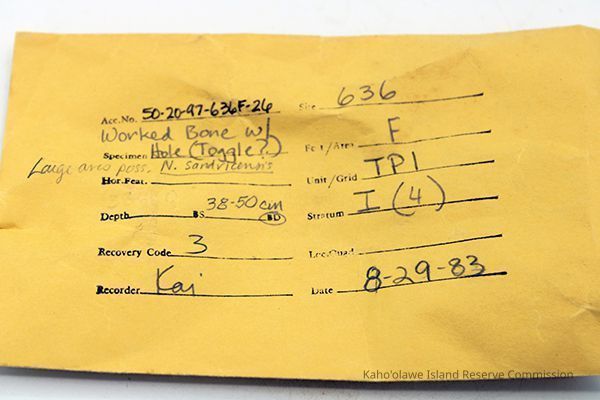 Acc.No. 50-20-97-636F-26
Site 636
Worked Bone w/
Specimen Hole (Toggle?)
Fea/Area F
Large aves poss. N. sandvicensis
Hor.Feat.
Unit/Grid TP1
Depth BS 38-50cm BD
Stratum I (4)
Recovery Code 3
Loc.Quad.
Recorder Kai
Date 8-29-83
Kaho'olawe Island Reserve Commission